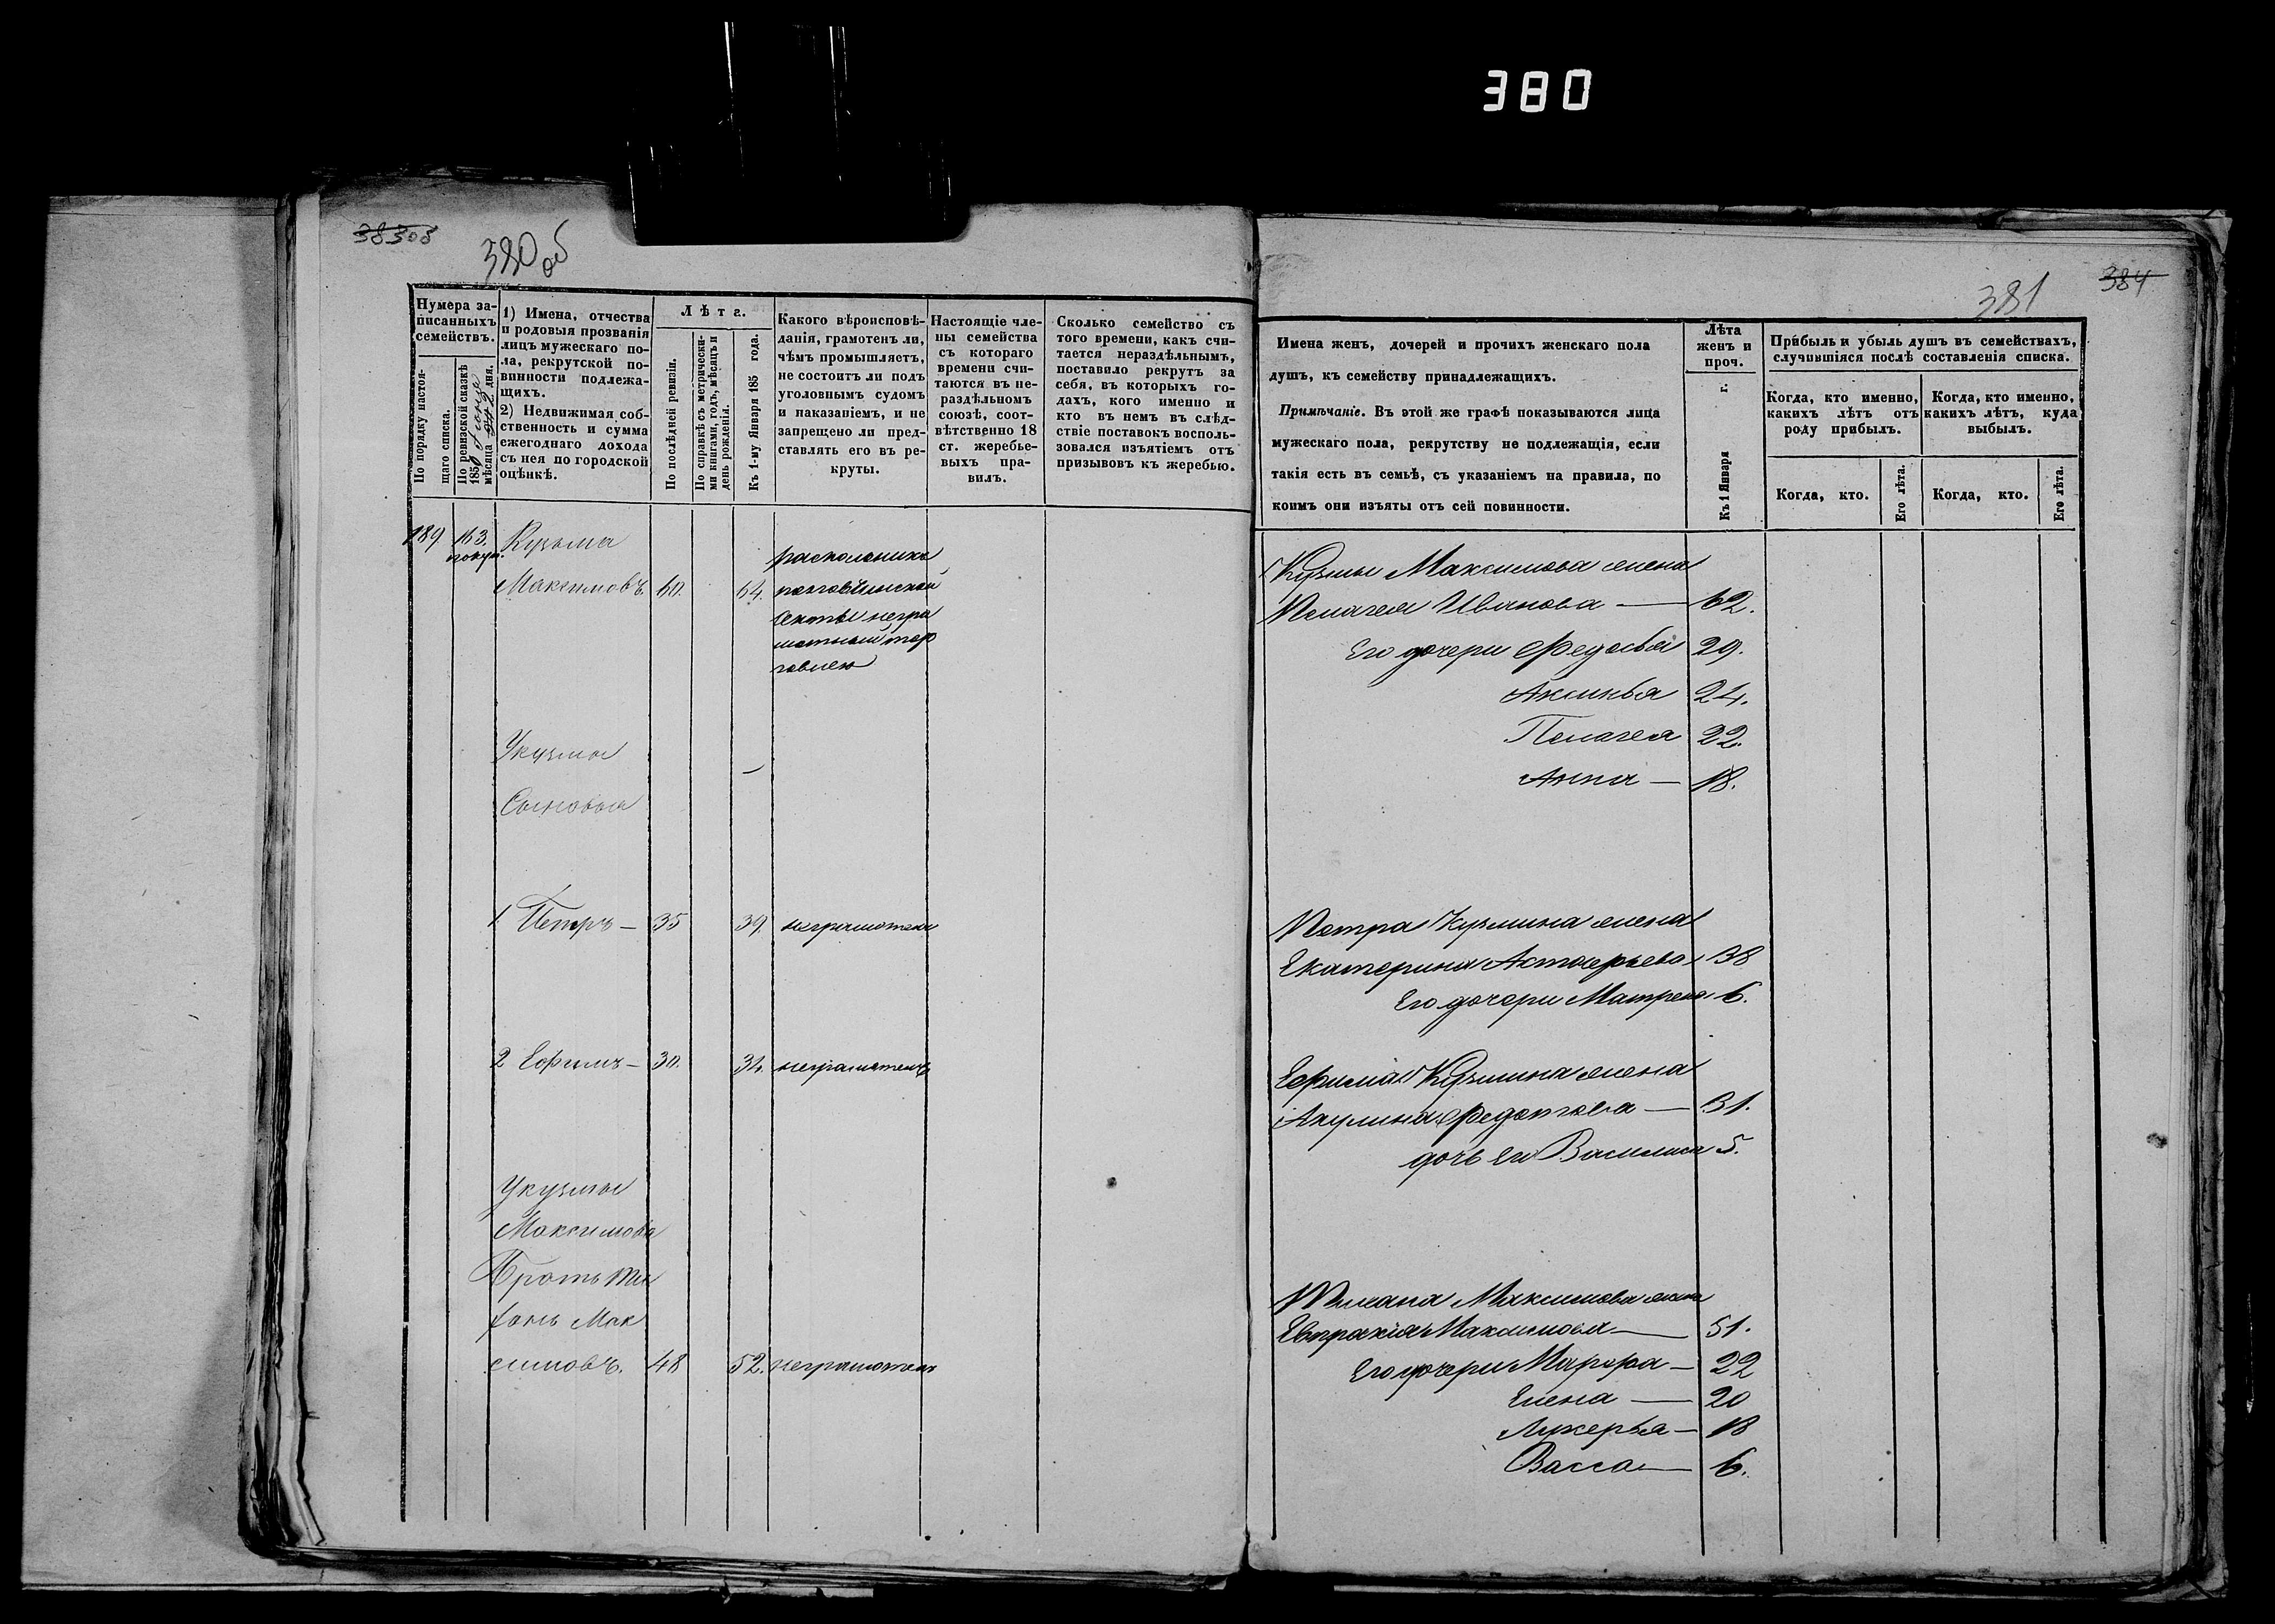 380
383об
380об
Нумера за-
писанныхъ
семействъ.
По порядку настоя-
щаго списка.
По ревизской сказкѣ
1850 г.
мѣсяца дня.
1) Имена, отчества
и родовыя прозванія
лицъ мужескаго по-
ла, рекрутской по-
винности подлежа-
щихъ.
2) Недвижимая соб-
ственность и сумма
ежегоднаго дохода
съ нея по городской
оцѣнкѣ.
Лѣта.
По послѣдней ревизіи.
По справкѣ съ метрически-
ми книгами, годъ, мѣсяцъ и
день рожденія.
Къ 1-му Января 185 года.
Какого вѣроисповѣ-
данія, грамотенъ ли,
чѣмъ промышляетъ,
не состоитъ ли подъ
уголовнымъ судомъ
и наказаніемъ, и не
запрещено ли пред-
ставлять его въ ре-
круты.
Настоящіе чле-
ны семейства
съ котораго
времени счи-
таются въ не-
раздѣльномъ
союзѣ, соот-
вѣтственно 18
ст. жеребье-
выхъ пра-
вилъ.
Сколько семейство съ
того времени, какъ счи-
тается нераздѣльнымъ,
поставило рекрутъ за
себя, въ которыхъ го-
дахъ, кого именно и
кто въ немъ въ слѣд-
ствіе поставокъ восполь-
зовался изъятіемъ отъ
призывовъ къ жеребью.
189 163. Кузьма
Максимовъ. 60. 64.
раскольника
поповщинской
секты негра
мотный тор
говлею
Укузмы
Сыновья
1 Петръ — 35 39. неграмотенъ
2 Ефимъ — 30. 34. неграмотенъ
Укузмы
Максимова
Братъ Ти
хонъ Мак
симовъ. 48 52. неграмотенъ
384
381
Имена женъ, дочерей и прочихъ женскаго пола
душъ, къ семейству принадлежащихъ.
Примѣчаніе. Въ этой же графѣ показываются лица
мужескаго пола, рекрутству не подлежащія, если
такія есть въ семьѣ, съ указаніемъ на правила, по
коимъ они изъяты отъ сей повинности.
Лѣта
женъ и
проч.
Къ 1 Января г.
Прибыль и убыль душъ въ семействахъ,
случившіяся послѣ составленія списка.
Когда, кто именно,
какихъ лѣтъ отъ
роду прибылъ.
Когда, кто именно,
какихъ лѣтъ, куда
выбылъ.
Когда, кто.
Его лѣта.
Когда, кто.
Его лѣта.
Кузмы Максимова жена
Пелагея Иванова — 62.
Его дочери Федосья 29.
Аксинья 24.
Пелагея 22.
Анна — 18.
Петра Кузмина жена
Екатерина Астафьева 38
Его дочери Матрена 6.
Ефима Кузмина жена
Акулина Федотова — 31.
дочь ея Василиса 5.
Тихана Максимова жена
Евпраксия Максимова — 51.
Его дочери Марфа — 22
Елена — 20
Лукерья — 18
Васса — 6.